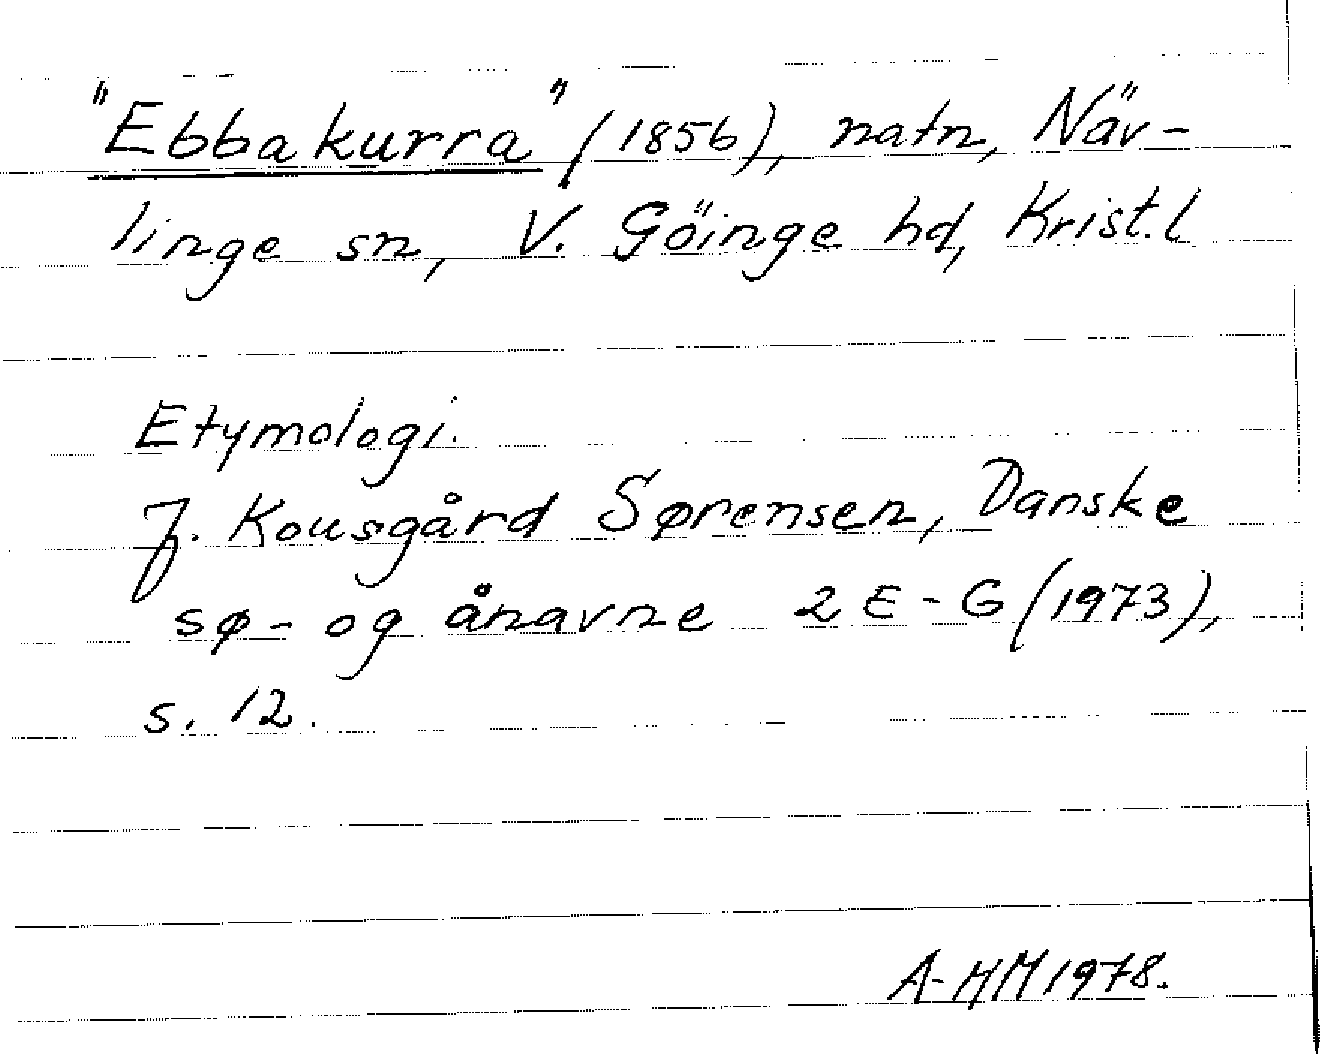 "Ebbakurra" (1856), natn, Näv-
linge sn, V. Göinge hd, Krist. l
Etymologi.
J. Kousgård Sørensen, Danske
sø- og ånavne 2 E-G (1973),
s. 12.
A-HM 1978.